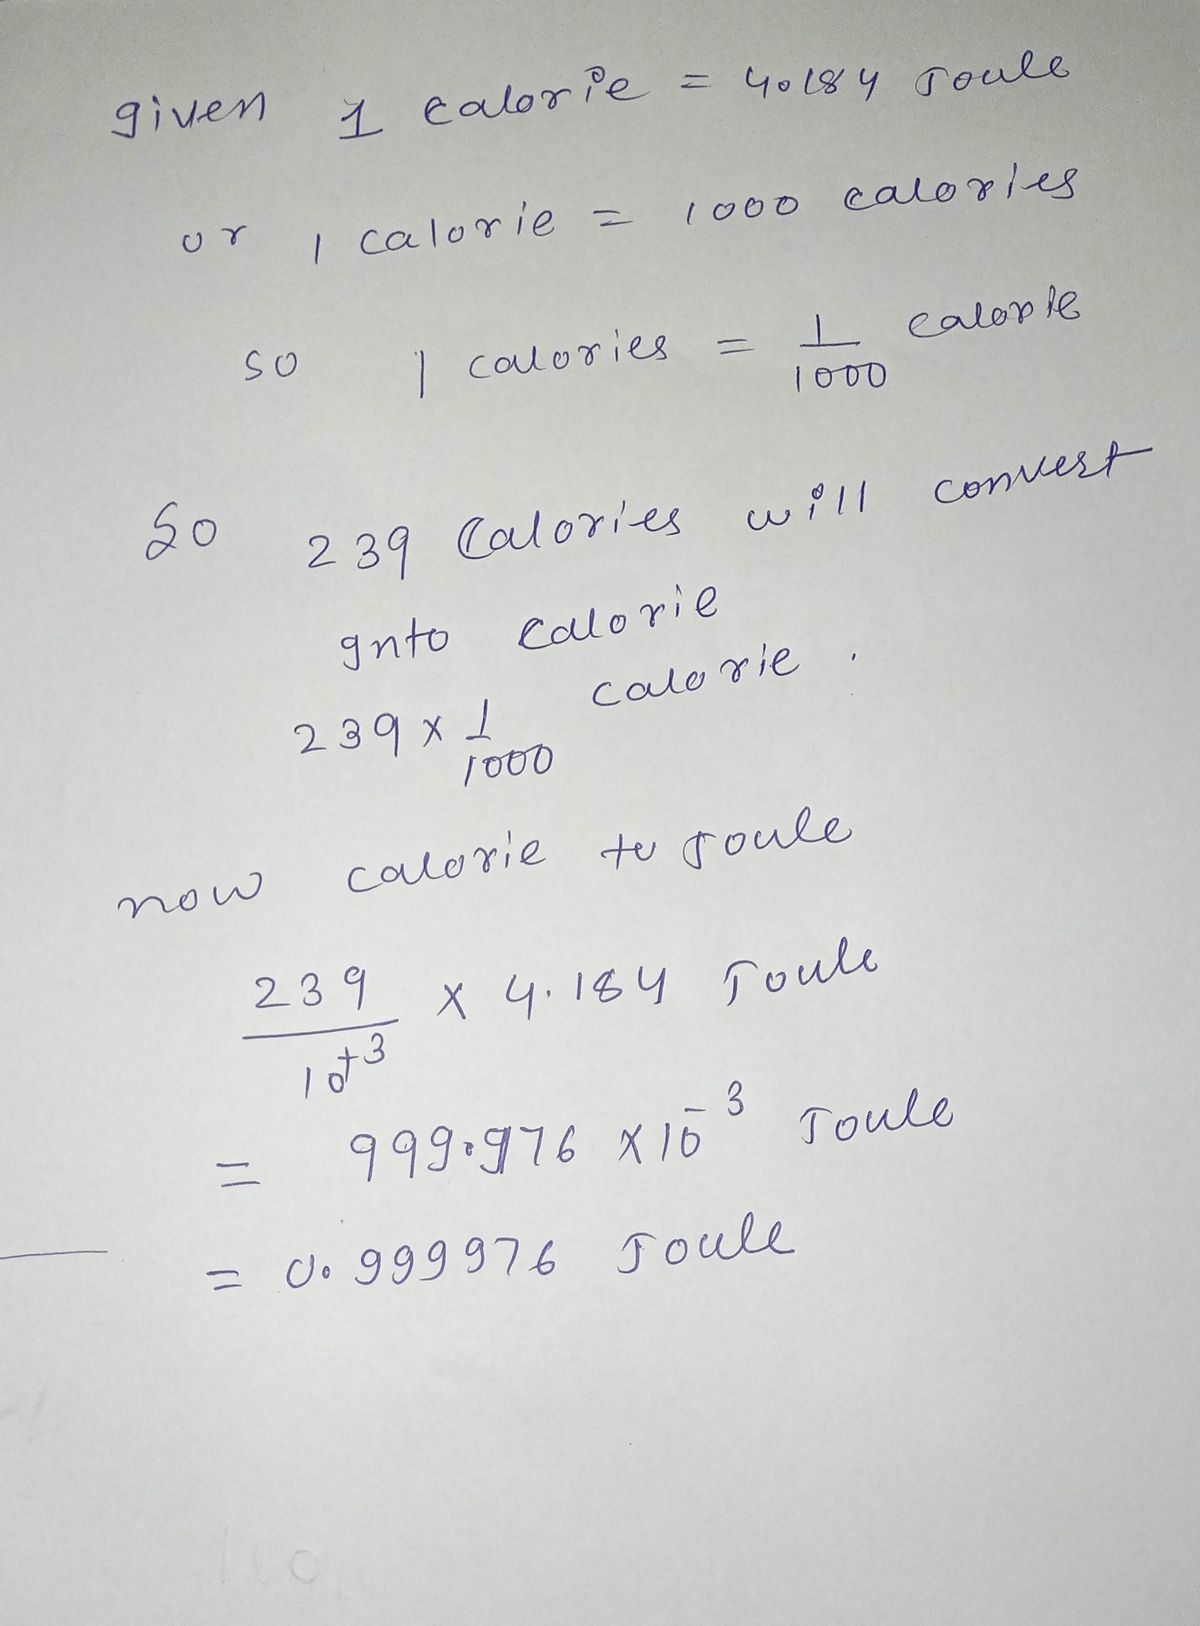 given 1 calorie = 4.184 Joule
or 1 calorie = 1000 calories
so 1 calories = 1/1000 calorie
So 239 Calories will convert
into calorie
239 x 1/1000 calorie.
now calorie to Joule
239/10^+3 x 4.184 Joule
= 999.976 x 10^-3 Joule
= 0.999976 Joule